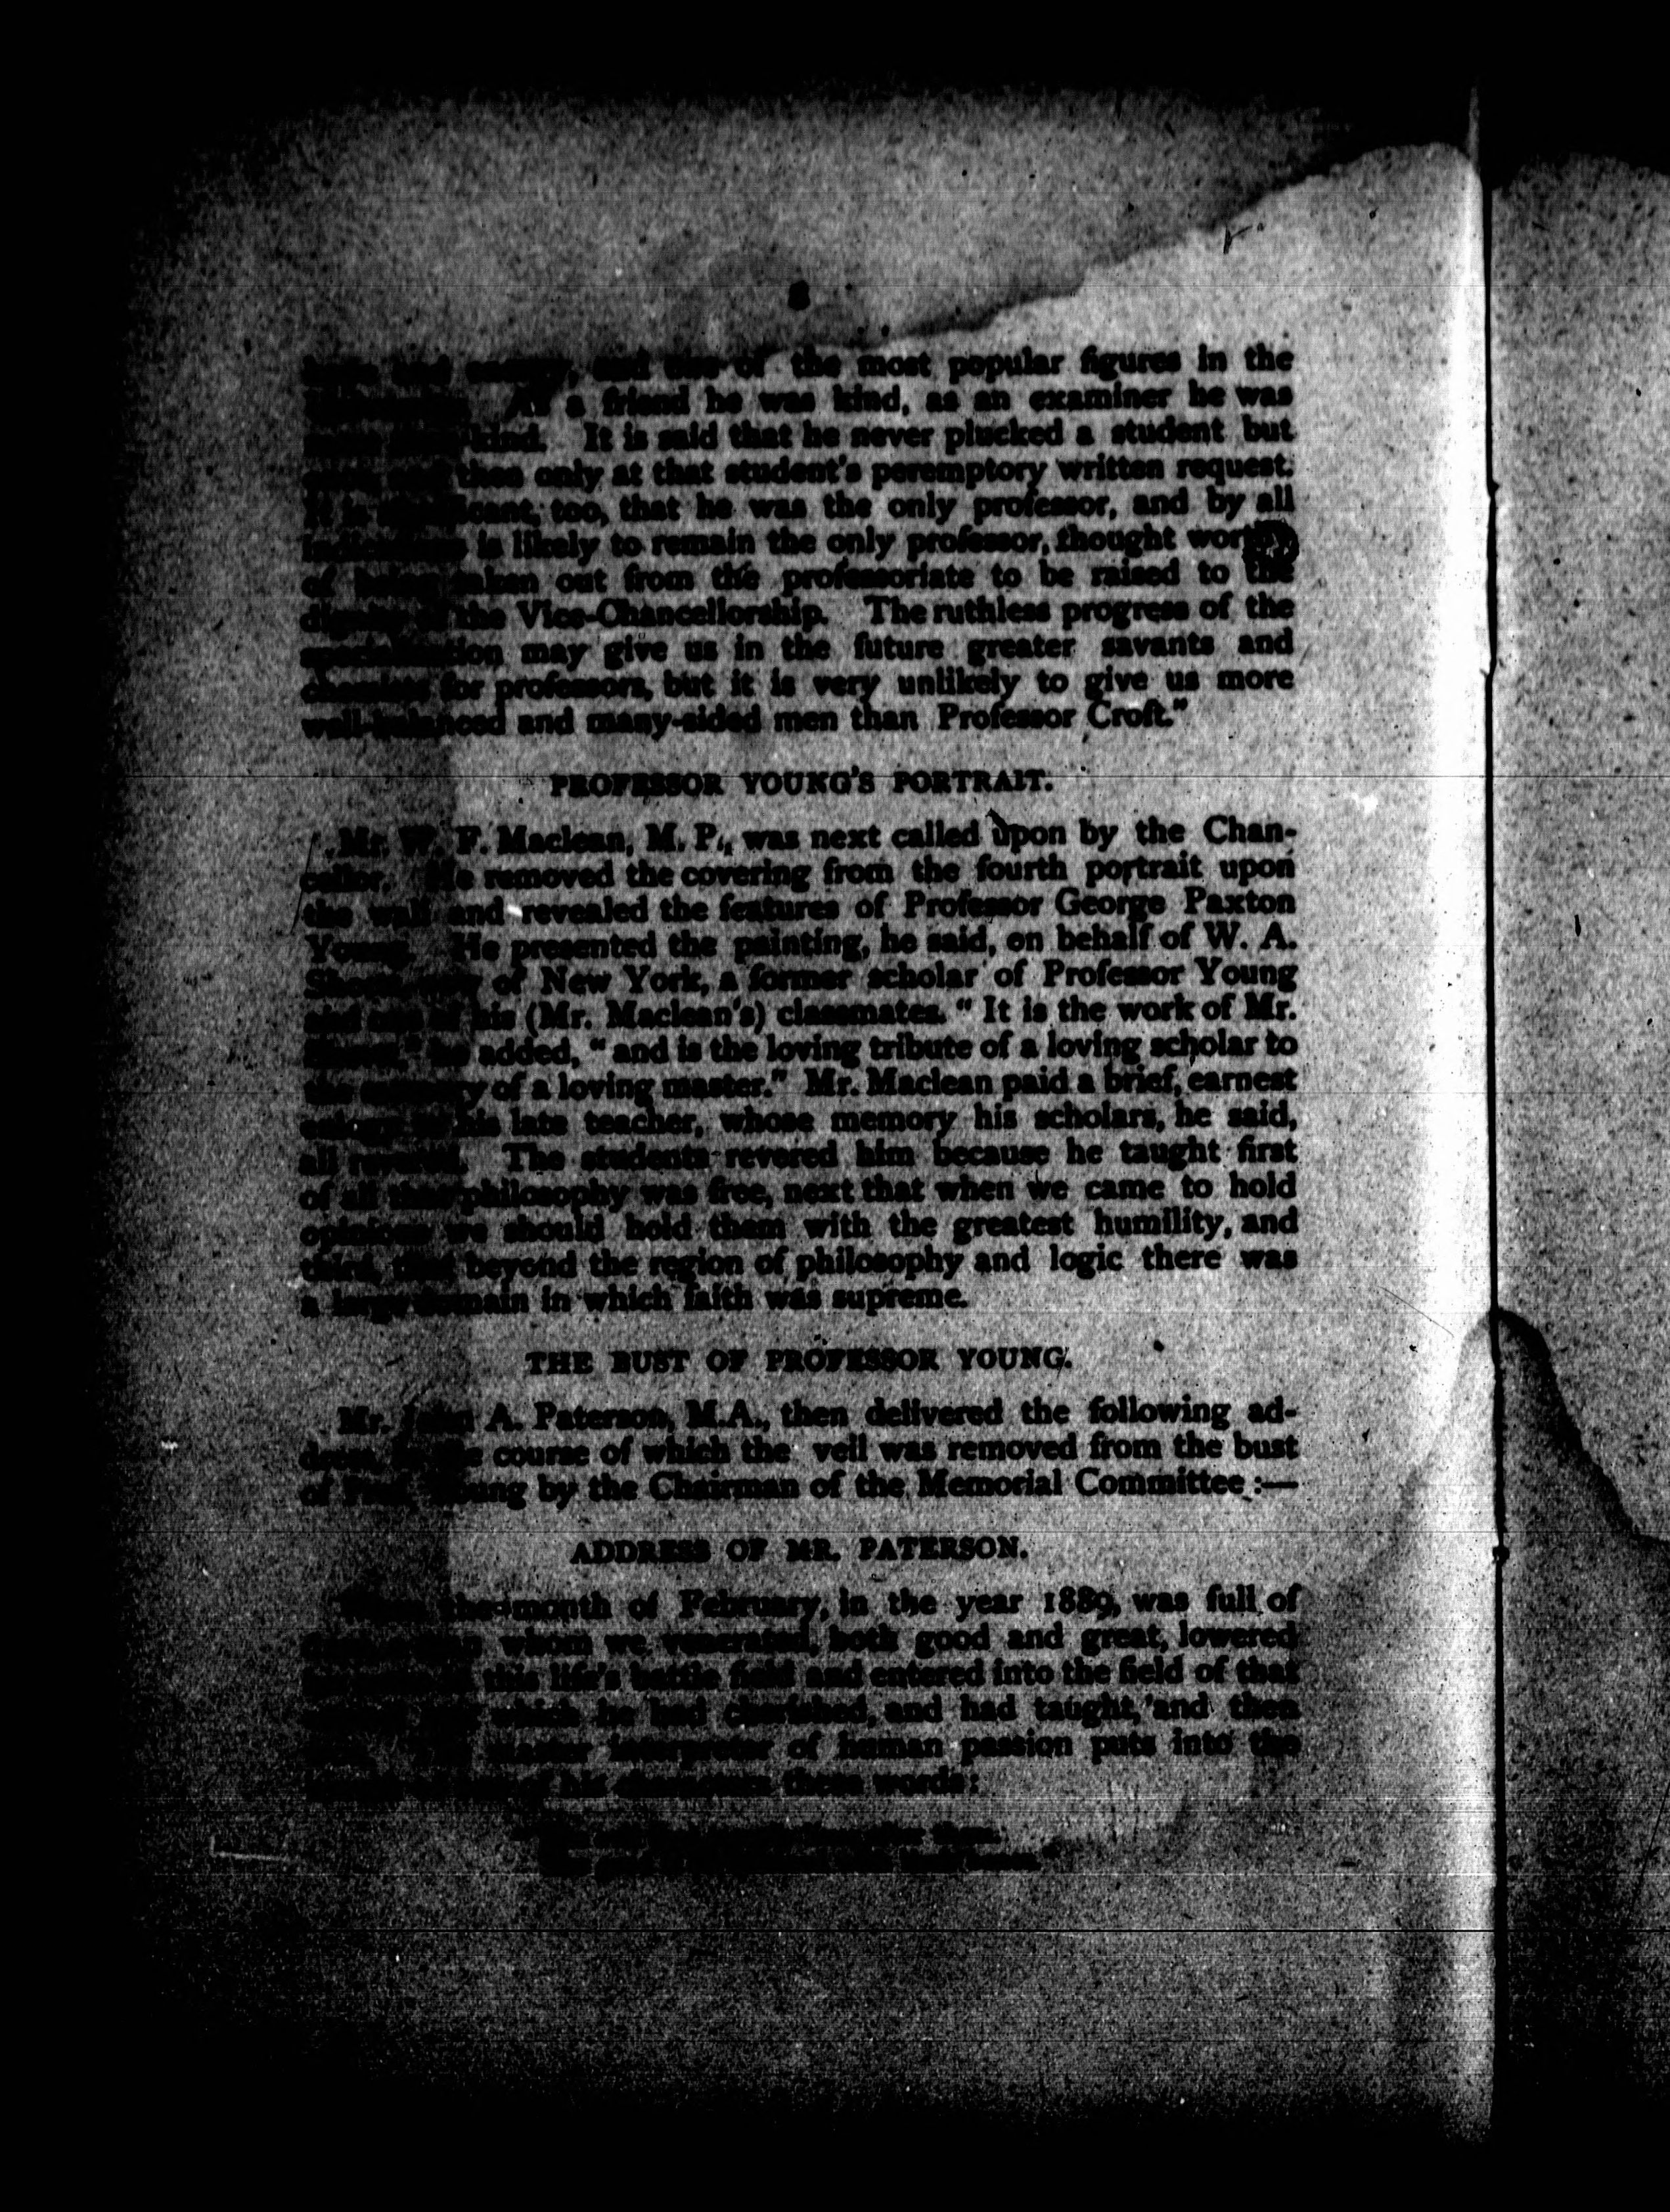 8
and of the most popular figures in the
As a friend he was kind, as an examiner he was
kind. It is said that he never plucked a student but
then only at that student's peremptory written request.
It is significant, too, that he was the only professor, and by all
indications is likely to remain the only professor, thought worthy
of being taken out from the professoriate to be raised to the
dignity of the Vice-Chancellorship. The ruthless progress of the
specialization may give us in the future greater savants and
for professors, but it is very unlikely to give us more
well-balanced and many-sided men than Professor Croft."
PROFESSOR YOUNG'S PORTRAIT.
Mr. W. F. Maclean, M. P., was next called upon by the Chan-
cellor. He removed the covering from the fourth portrait upon
the wall and revealed the features of Professor George Paxton
Young. He presented the painting, he said, on behalf of W. A.
of New York, a former scholar of Professor Young
and one of his (Mr. Maclean's) classmates. "It is the work of Mr.
he added, "and is the loving tribute of a loving scholar to
the memory of a loving master." Mr. Maclean paid a brief, earnest
eulogy to his late teacher, whose memory his scholars, he said,
all revered. The students revered him because he taught first
of all that philosophy was free, next that when we came to hold
opinions we should hold them with the greatest humility, and
third, that beyond the region of philosophy and logic there was
a large domain in which faith was supreme.
THE BUST OF PROFESSOR YOUNG.
Mr. John A. Paterson, M.A., then delivered the following ad-
dress, in the course of which the veil was removed from the bust
of Prof. Young by the Chairman of the Memorial Committee:—
ADDRESS OF MR. PATERSON.
When the month of February, in the year 1889, was full of
whom we venerated, both good and great, lowered
this life's battle field and entered into the field of that
which he had cherished, and had taught, and then
master interpreter of human passion puts into the
of his characters these words: